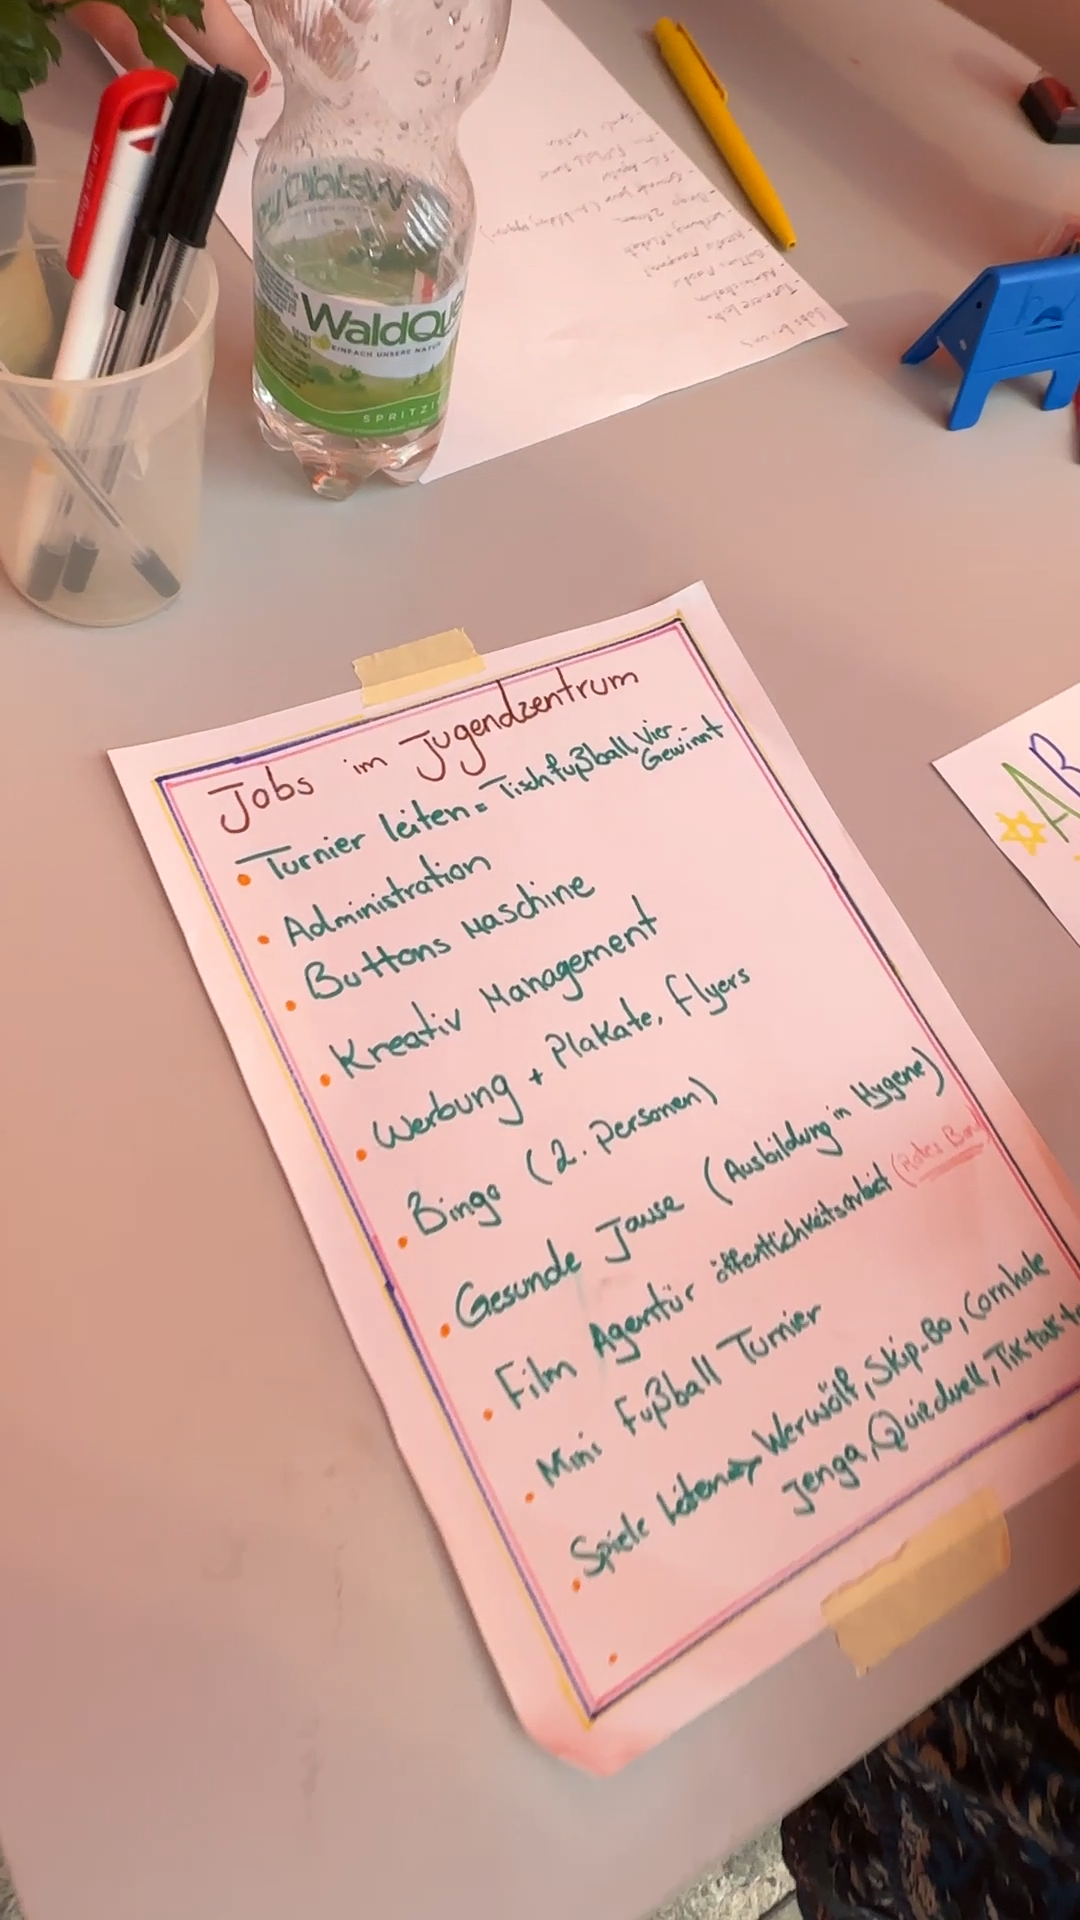 WaldQue
EINFACH UNSERE NATUR
SPRITZI
Jobs im Jugendzentrum
Turnier leiten = Tischfußball, Vier Gewinnt
Administration
Buttons Maschine
Kreativ Management
Werbung + Plakate, Flyers
Bingo (2. Personen)
Gesunde Jause (Ausbildung in Hygene)
Film Agentür öffentlichkeitsarbeit (Rotes Ban
Mini Fußball Turnier
Spiele leiten → Werwölf, Skip-Bo, Cornhole
Jenga, Quizduell, Tik tak to
AR